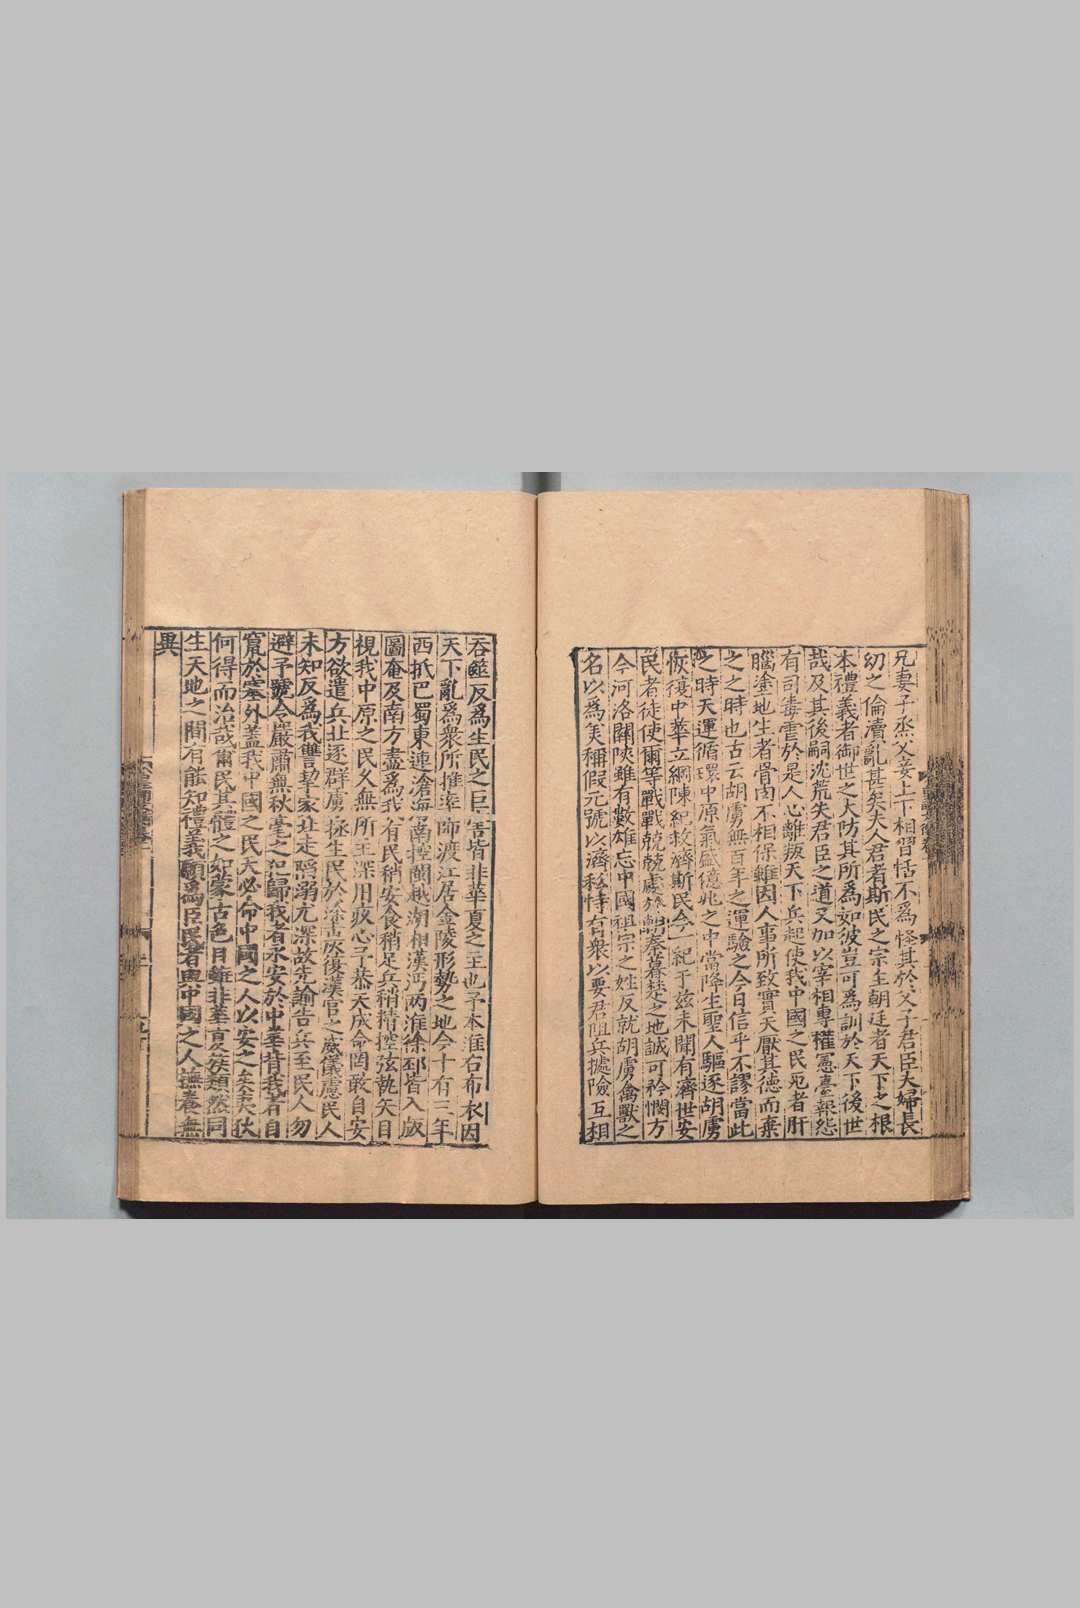 兄妻子烝父妾上下相習恬不爲怪其於父子君臣夫婦長
幼之倫瀆亂甚矣夫人君者斯民之宗主朝廷者天下之根
本禮義者御世之大防其所爲如彼豈可爲訓於天下後世
哉及其後嗣沈荒失君臣之道又加以宰相專權憲臺報怨
有司毒虐於是人心離叛天下兵起使我中國之民死者肝
腦塗地生者骨肉不相保雖因人事所致實天厭其德而棄
之之時也古云胡虜無百年之運驗之今日信乎不謬當此
之時天運循環中原氣盛億兆之中當降生聖人驅逐胡虜
恢復中華立綱陳紀救濟斯民今一紀于兹未聞有濟世安
民者徒使爾等戰戰兢兢處於朝秦暮楚之地誠可矜憫方
今河洛關陝雖有數雄忘中國祖宗之姓反就胡虜禽獸之
名以爲美稱假元號以濟私恃有衆以要君阻兵據險互相
吞噬反爲生民之巨害皆非華夏之主也予本淮右布衣因
天下亂爲衆所推率師渡江居金陵形勢之地今十有三年
西抵巴蜀東連滄海南控閩越湖湘漢沔兩淮徐邳皆入版
圖奄及南方盡爲我有民稍安食稍足兵稍精控弦執矢目
視我中原之民久無所主深用疚心予恭天成命罔敢自安
方欲遣兵北逐群虜拯生民於塗炭復漢官之威儀慮民人
未知反爲我讐挈家北走陷溺尤深故先諭告兵至民人勿
避予號令嚴肅無秋毫之犯歸我者永安於中華背我者自
竄於塞外蓋我中國之民天必命中國之人以安之矣夷狄
何得而治哉爾民其體之如蒙古色目雖非華夏族類然同
生天地之間有能知禮義願爲臣民者與中國之人撫養無
異